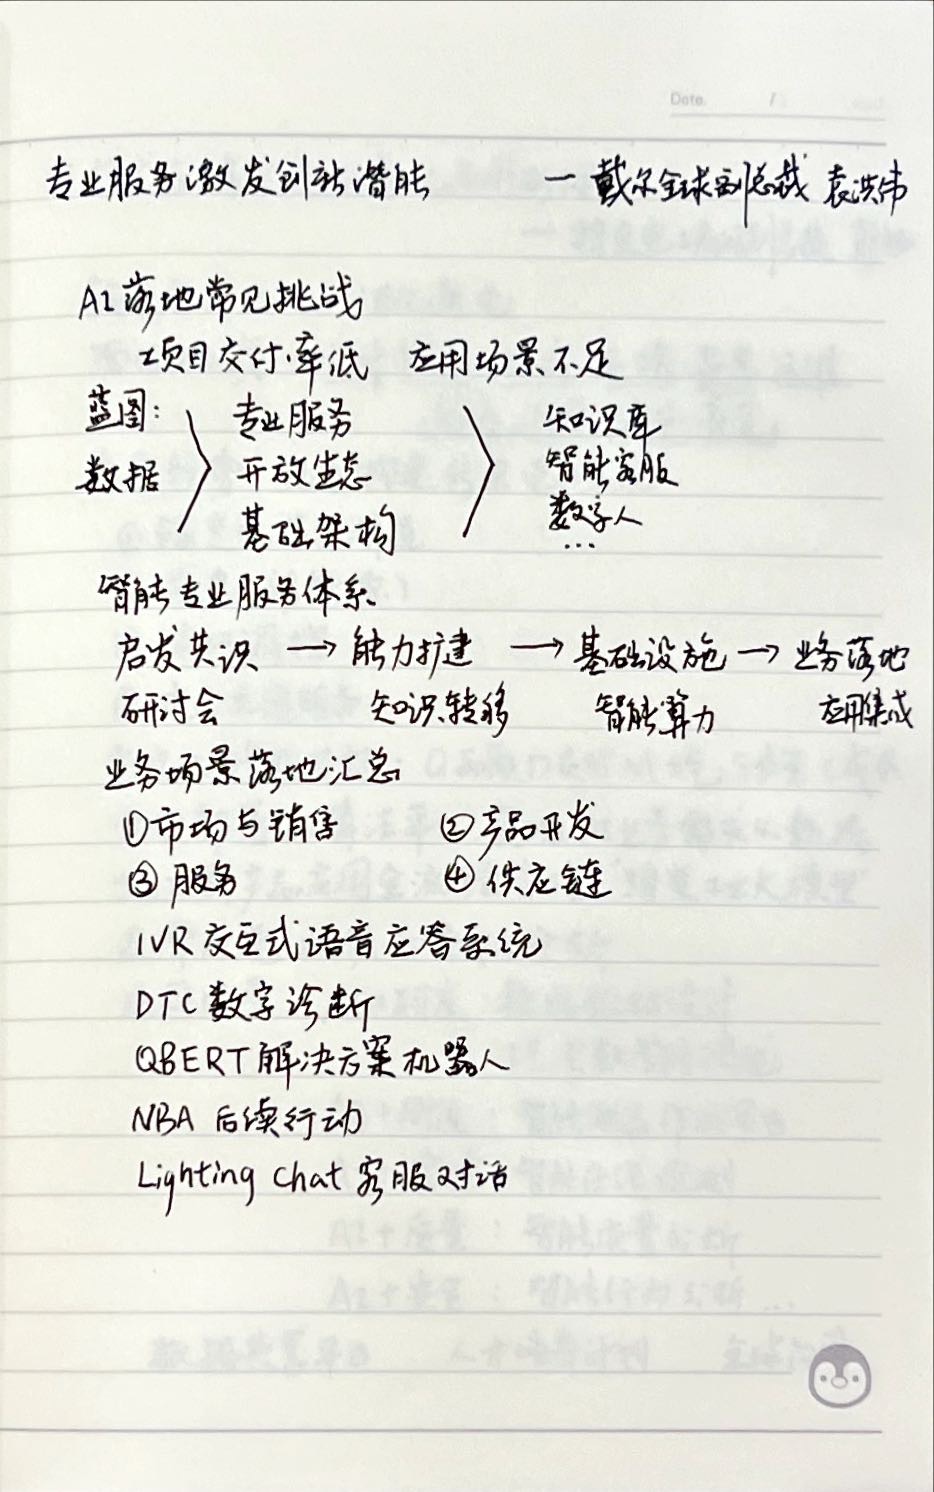 Date. /
专业服务激发创新潜能 — 戴尔全球副总裁 袁洪伟
AI落地常见挑战
项目交付率低 应用场景不足
蓝图: 专业服务 知识库
数据 > 开放生态 > 智能客服
基础架构 数字人
...
智能专业服务体系
启发共识 → 能力扩建 → 基础设施 → 业务落地
研讨会 知识转移 智能算力 应用集成
业务场景落地汇总
①市场与销售 ②产品开发
③服务 ④供应链
IVR 交互式语音应答系统
DTC 数字诊断
QBERT 解决方案机器人
NBA 后续行动
Lighting Chat 客服对话